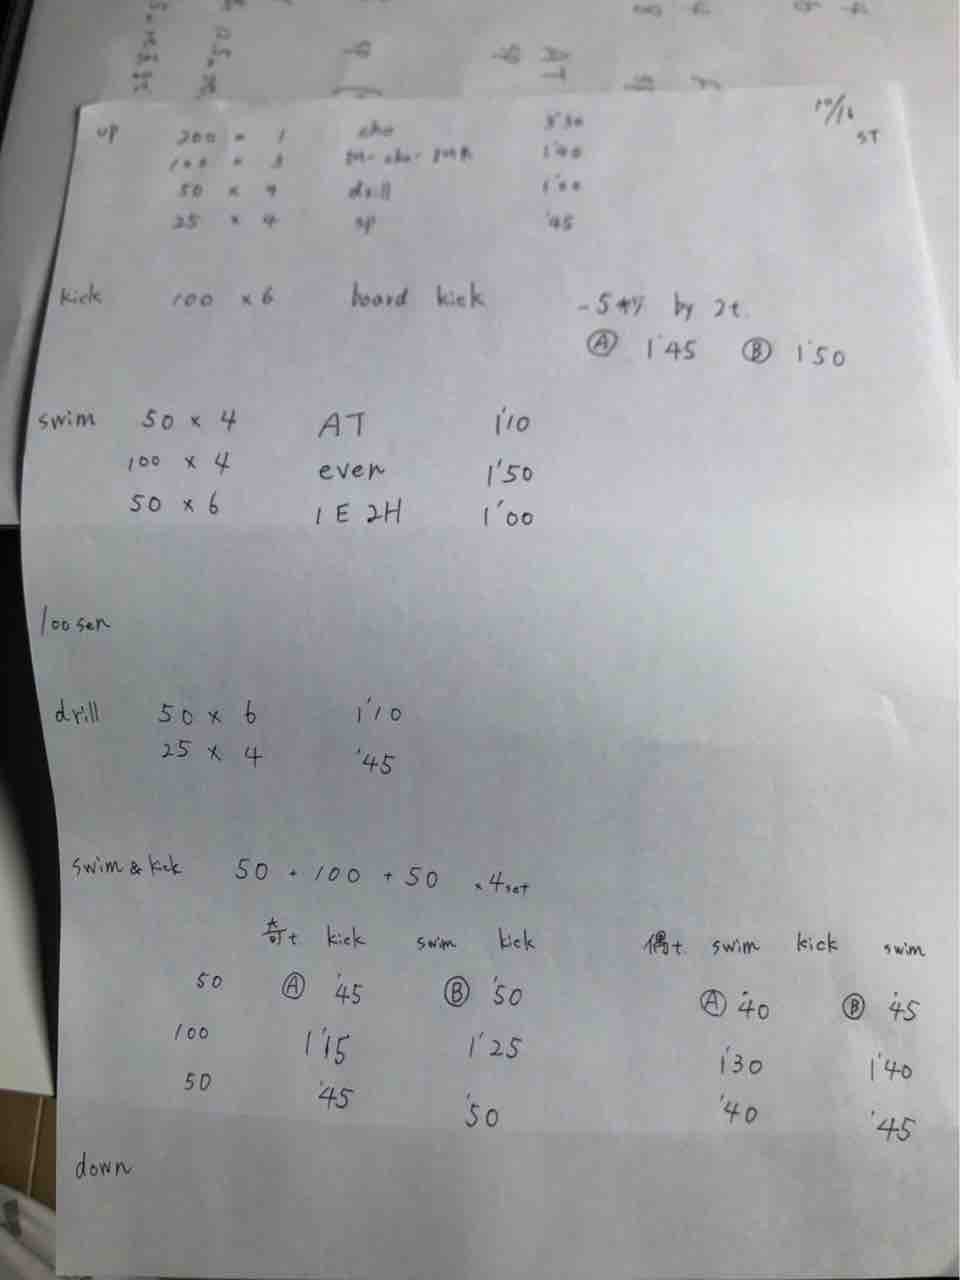 10/16
ST
up 200 × 1 cho 3'30
100 × 3 1'40
50 × 4 drill 1'00
25 × 4 sp '45
kick 100 × 6 board kick -5 by 2t.
Ⓐ 1'45 Ⓑ 1'50
swim 50 × 4 AT 1'10
100 × 4 even 1'50
50 × 6 1E 2H 1'00
loosen
drill 50 × 6 1'10
25 × 4 '45
swim & kick 50 + 100 + 50 × 4set
奇t kick swim kick 偶t. swim kick swim
50 Ⓐ '45 Ⓑ '50 Ⓐ '40 Ⓑ '45
100 1'15 1'25 1'30 1'40
50 '45 '50 '40 '45
down